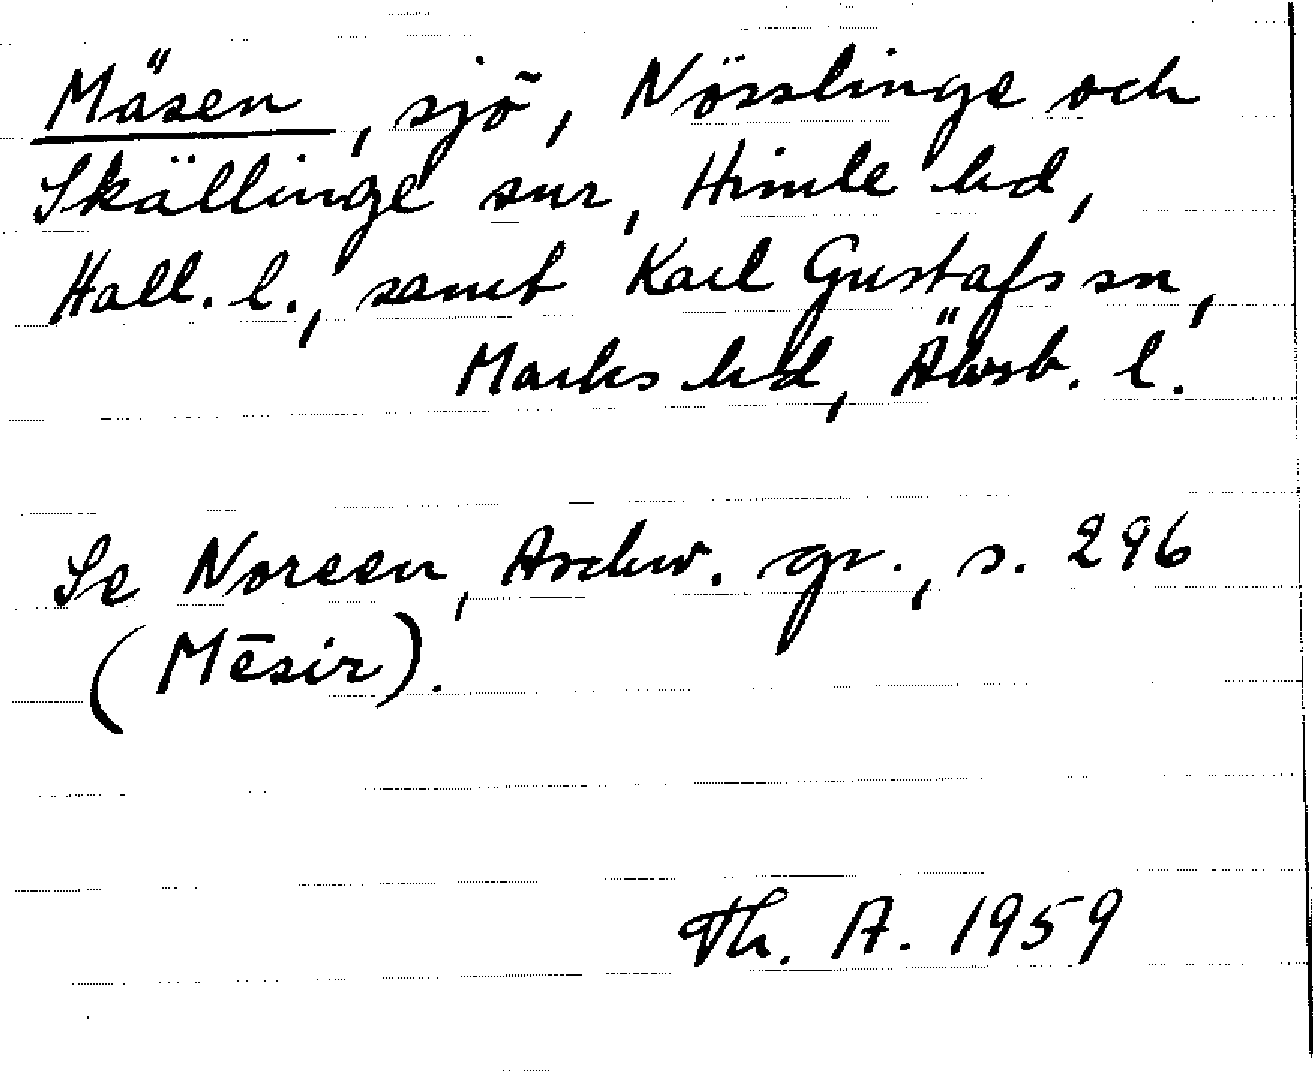 Mäsen, sjö, Nösslinge och
Skällinge snr, Himle hd,
Hall. l., samt Karl Gustafs sn,
Marks hd, Älvsb. l.
Se Noreen, Aschw. gr., s. 296
(Mēsir).
Th. A. 1959